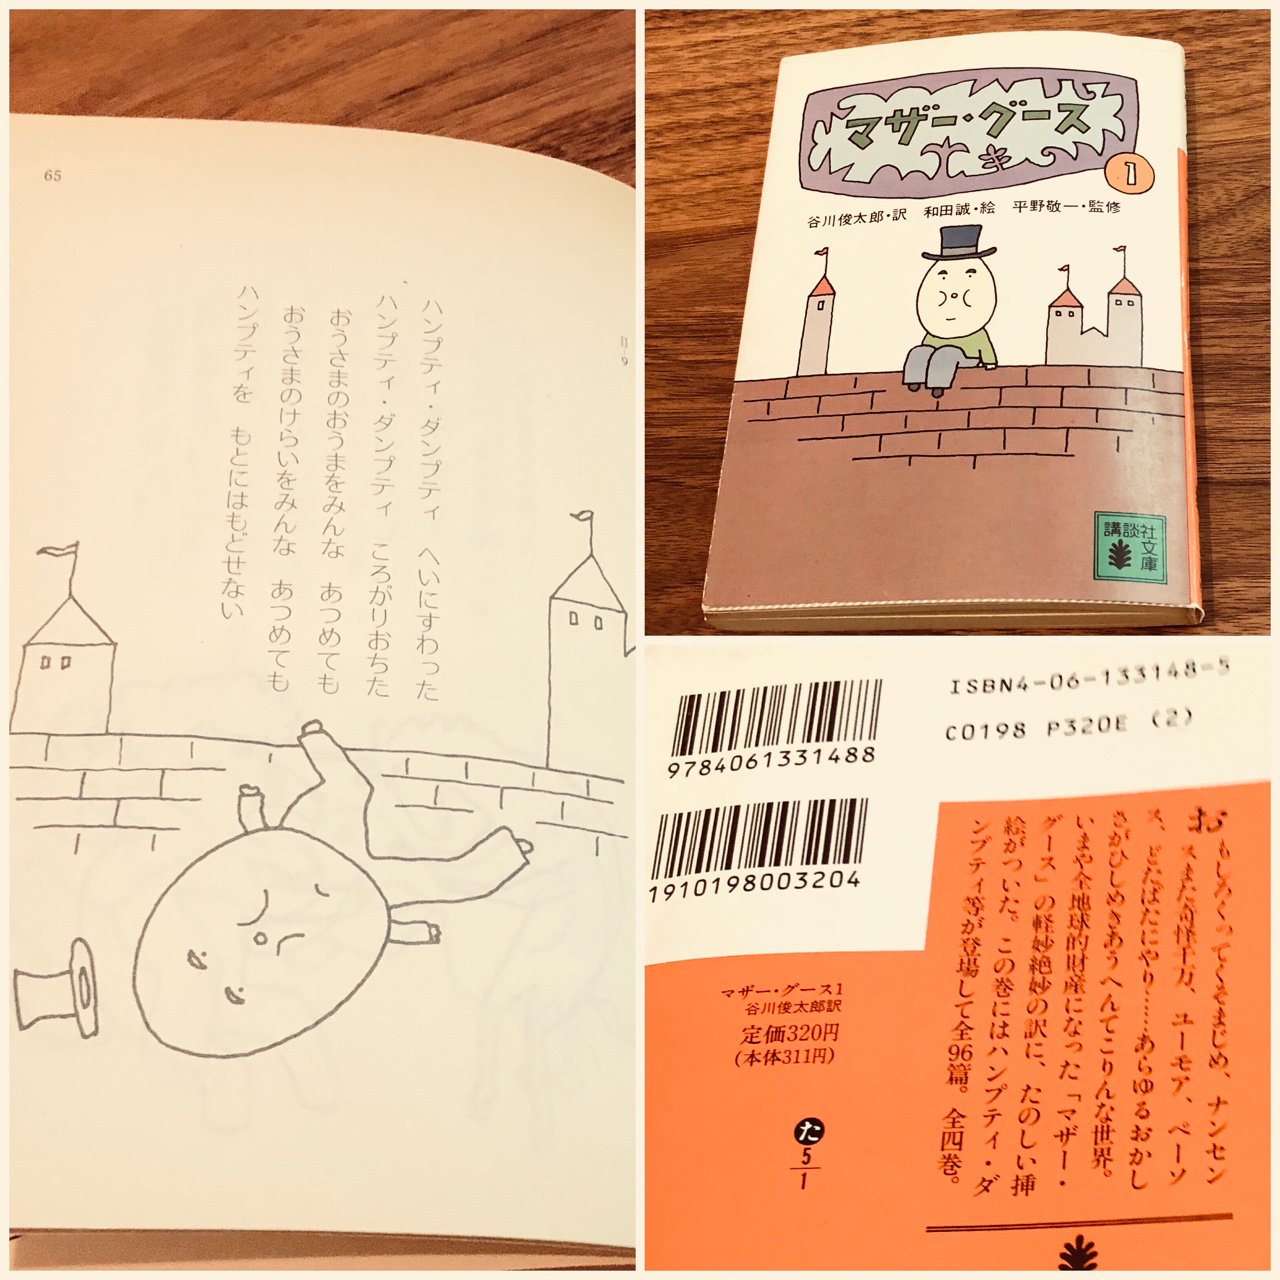 65
II-9
ハンプティ・ダンプティ　へいにすわった
ハンプティ・ダンプティ　ころがりおちた
おうさまのおうまをみんな　あつめても
おうさまのけらいをみんな　あつめても
ハンプティを　もとにはもどせない
マザー・グース
1
谷川俊太郎・訳　和田誠・絵　平野敬一・監修
講談社
文庫
ISBN4-06-133148-5
C0198 P320E (2)
9784061331488
1910198003204
おもしろくってくそまじめ、ナンセン
スまた奇怪千万、ユーモア、ペーソ
ス、どたばたにやり……あらゆるおかし
さがひしめきあうへんてこりんな世界。
いまや全地球的財産になった「マザー・
グース」の軽妙絶妙の訳に、たのしい挿
絵がついた。この巻にはハンプティ・ダ
ンプティ等が登場して全96篇。全四巻。
マザー・グース1
谷川俊太郎訳
定価320円
(本体311円)
た
5
1